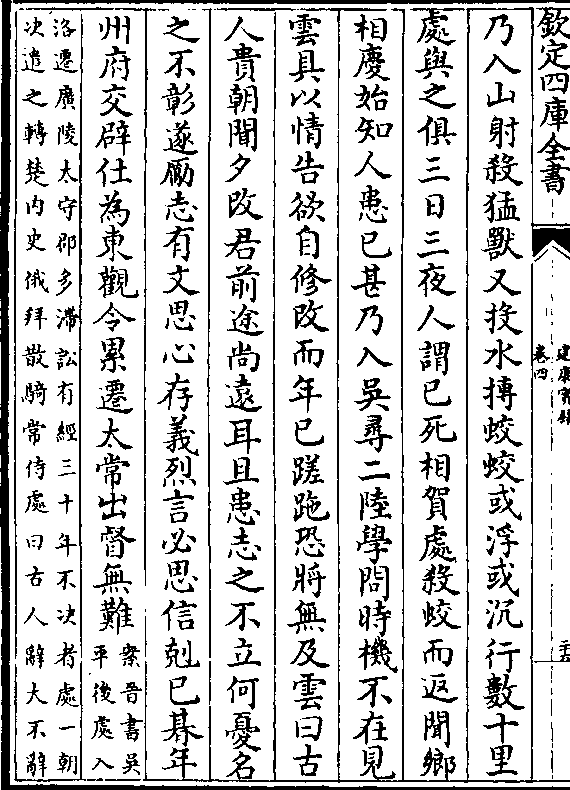 欽定四庫全書
建康實録
卷四
二十六
乃入山射殺猛獸又投水搏蛟蛟或浮或沉行數十里
處與之俱三日三夜人謂已死相賀處殺蛟而返聞鄉
相慶始知人患已甚乃入吳尋二陸學問時機不在見
雲具以情告欲自修改而年已蹉跎恐將無及雲曰古
人貴朝聞夕改君前途尚遠耳且患志之不立何憂名
之不彰遂勵志有文思心存義烈言必思信剋已朞年
州府交辟仕為東觀令累遷太常出督無難案晉書吳
平後處入
洛遷廣陵太守郡多滯訟有經三十年不决者處一朝
决遣之轉楚内史俄拜散騎常侍處曰古人辭大不辭